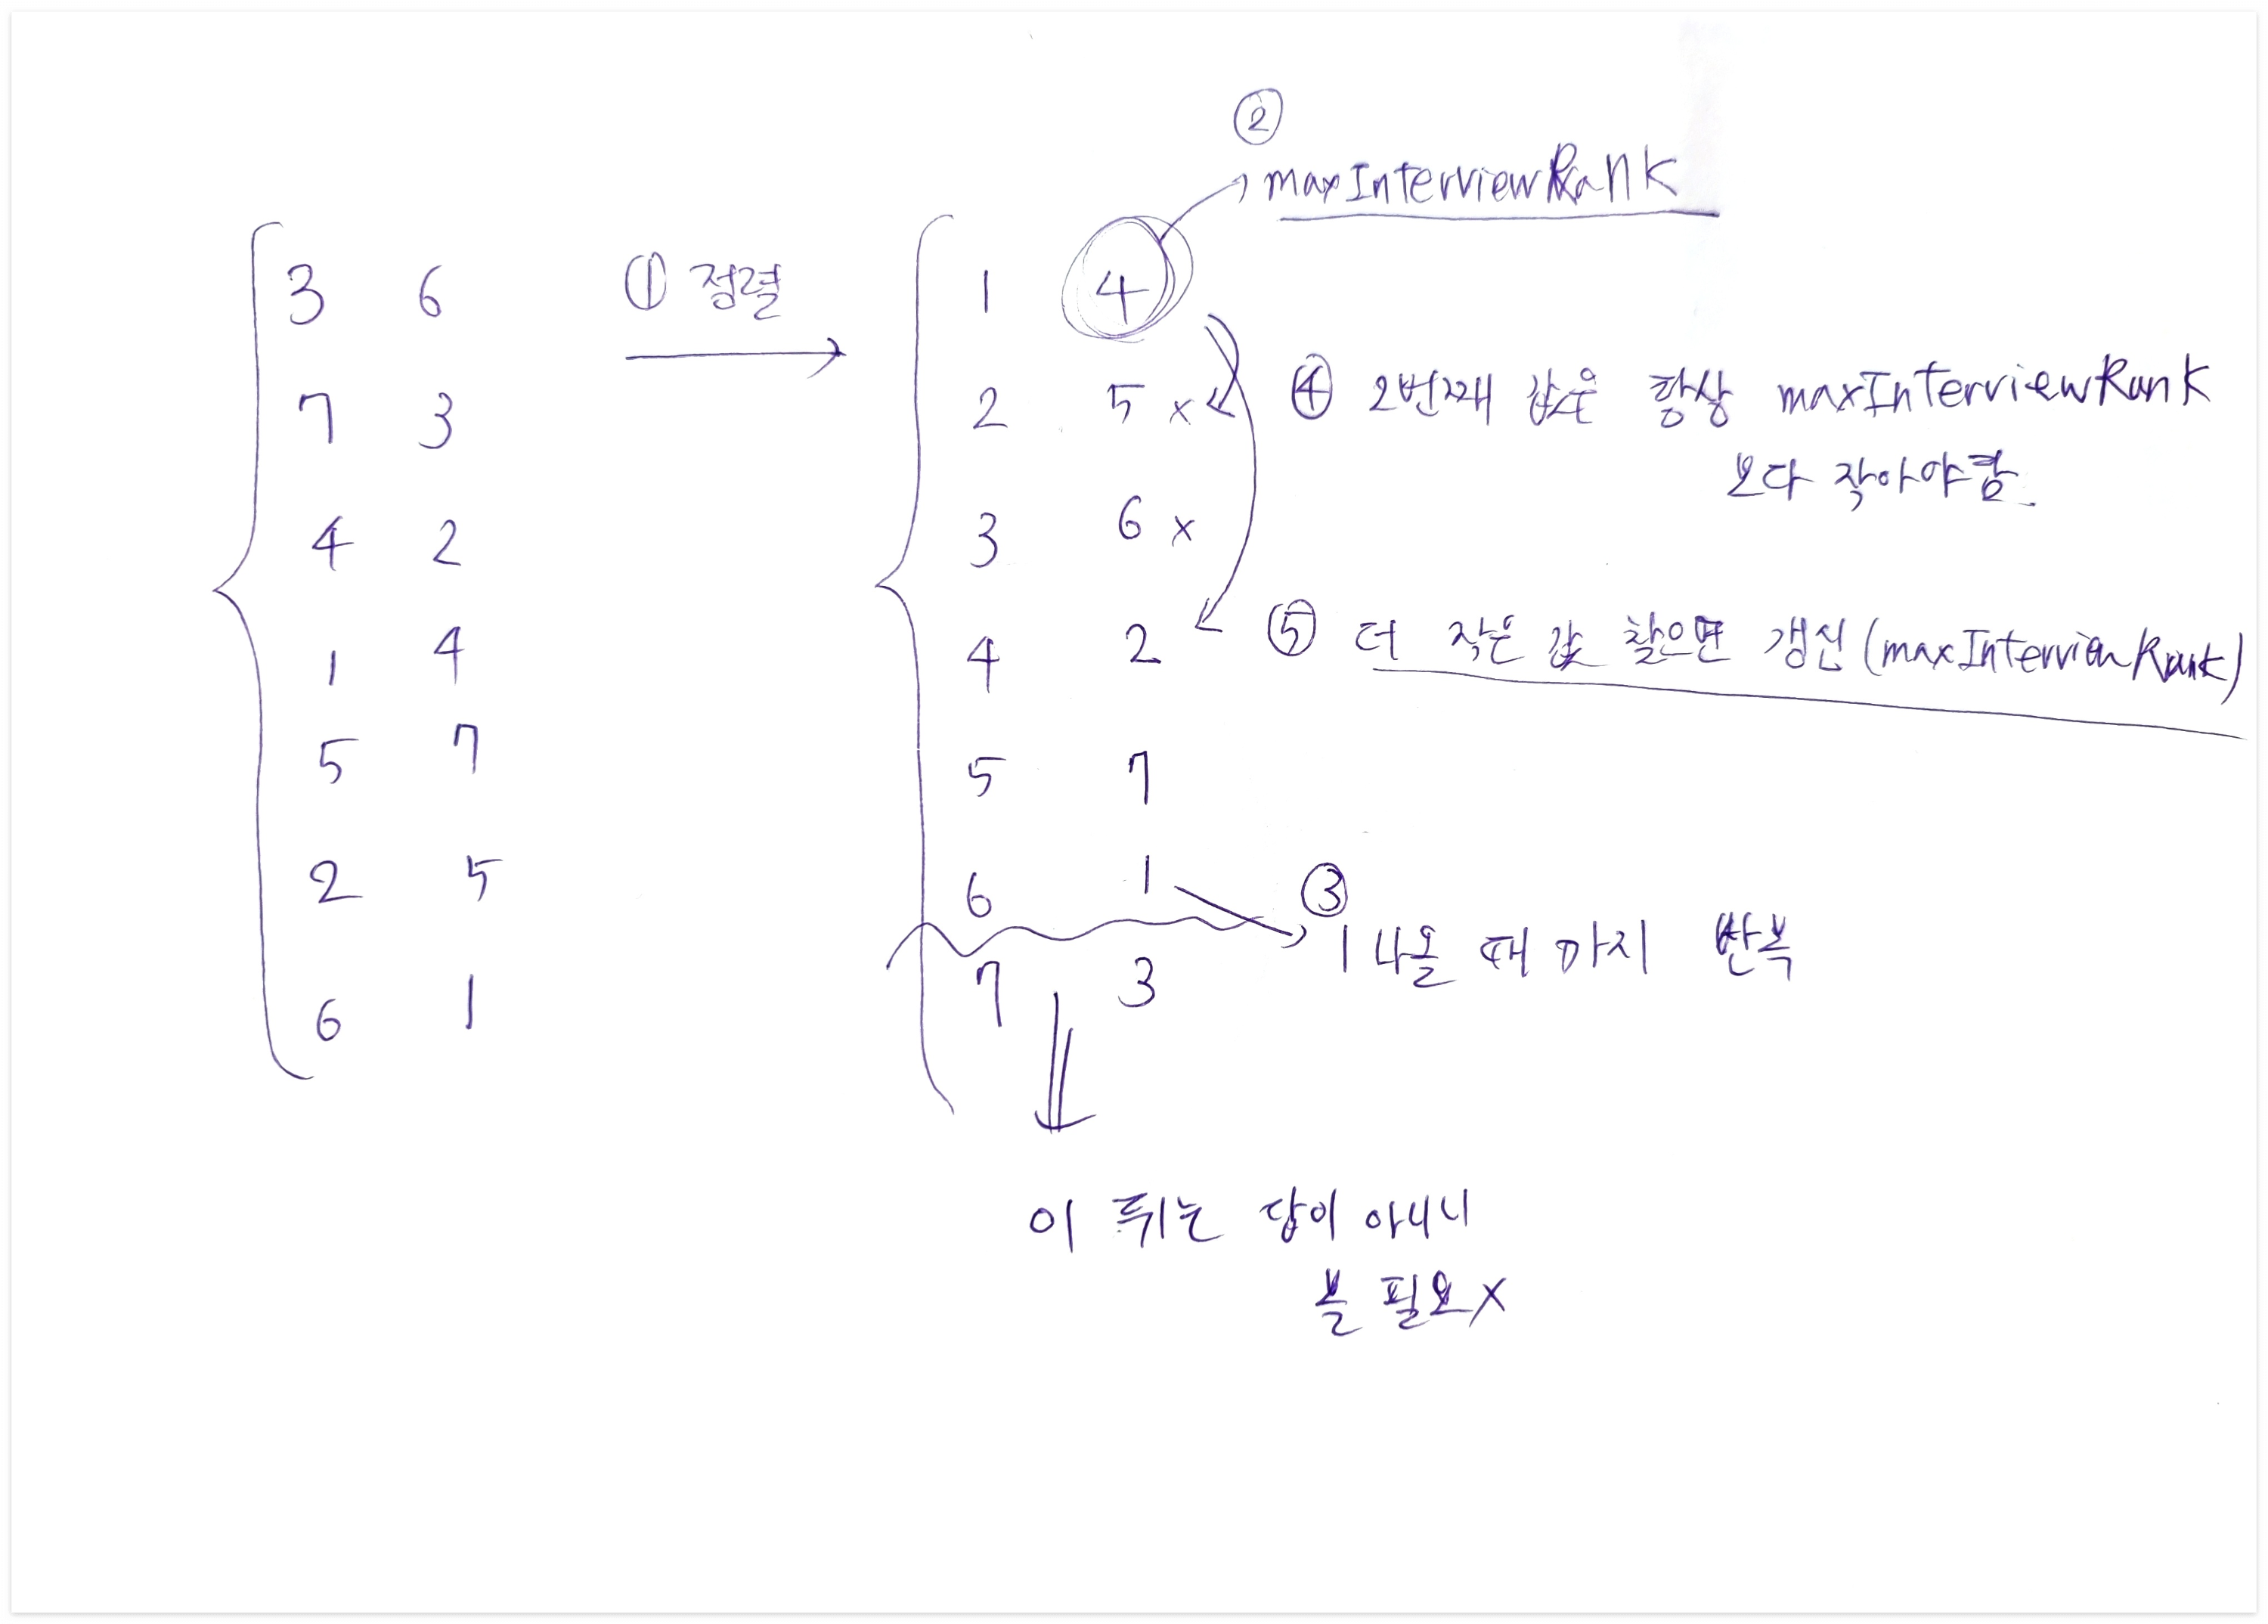 ②
maxInterviewRank
3 6 ① 정렬 1 4
7 3 2 5 x ④ 2번째 값은 항상 maxInterviewRank
보다 작아야함
4 2 3 6 x
1 4 4 2 ⑤ 더 작은 값 찾으면 갱신 (maxInterviewRank)
5 7 5 7
2 5 6 1 ③
1 나올 때 까지 반복
6 1 7 3
이 뒤는 답이 아니니
볼 필요X